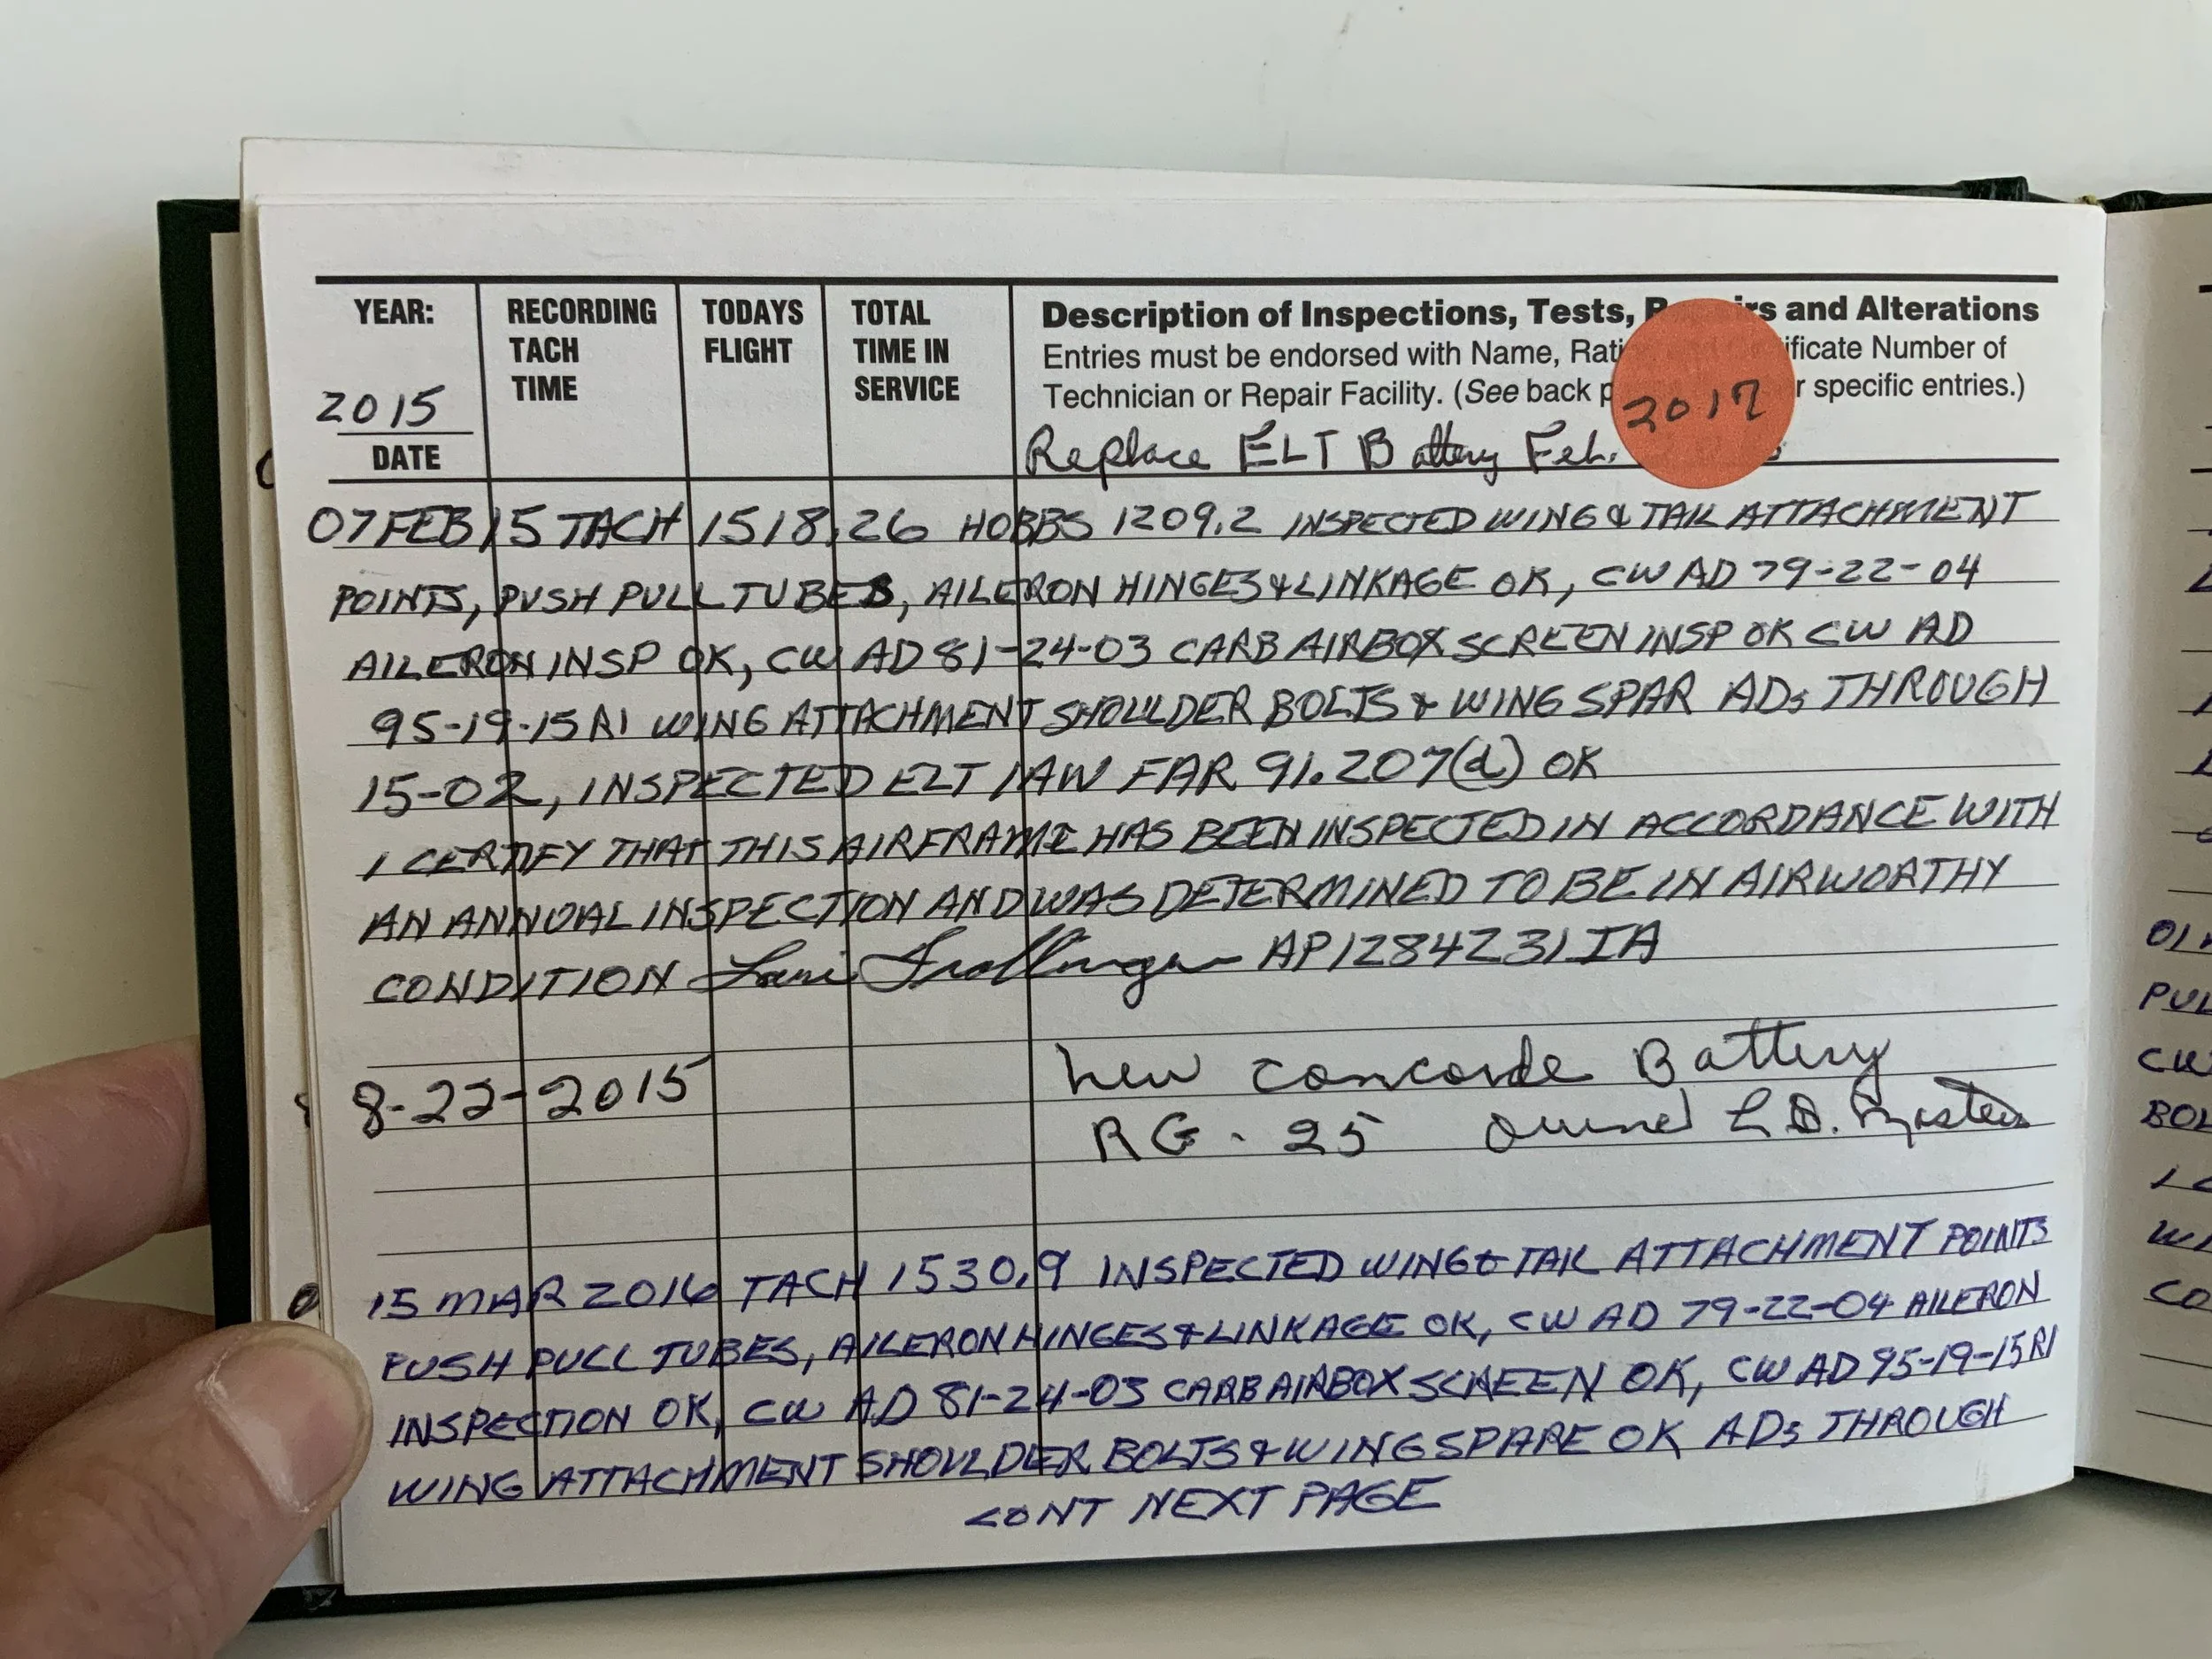 YEAR: RECORDING TACH TIME TODAYS FLIGHT TOTAL TIME IN SERVICE
2015
DATE
Description of Inspections, Tests, and Alterations
Entries must be endorsed with Name, Number of
Technician or Repair Facility. (See back specific entries.)
2017
Replace ELT Battery Feb.
07 FEB 15 TACH 1518.26 HOBBS 1209.2 INSPECTED WING & TAIL ATTACHMENT
POINTS, PUSH PULL TUBES, AILERON HINGES & LINKAGE OK, CW AD 79-22-04
AILERON INSP OK, CW AD 81-24-03 CARB AIRBOX SCREEN INSP OK CW AD
95-19-15R1 WING ATTACHMENT SHOULDER BOLTS & WING SPAR ADs THROUGH
15-02, INSPECTED ELT IAW FAR 91.207(d) OK
I CERTIFY THAT THIS AIRFRAME HAS BEEN INSPECTED IN ACCORDANCE WITH
AN ANNUAL INSPECTION AND WAS DETERMINED TO BE IN AIRWORTHY
CONDITION AP1284231IA
8-22-2015 New Concorde Battery
RG-25 Owner L.D.
15 MAR 2016 TACH 1530.9 INSPECTED WING & TAIL ATTACHMENT POINTS
PUSH PULL TUBES, AILERON HINGES & LINKAGE OK, CW AD 79-22-04 AILERON
INSPECTION OK, CW AD 81-24-03 CARB AIRBOX SCREEN OK, CW AD 95-19-15R1
WING ATTACHMENT SHOULDER BOLTS & WING SPARE OK ADs THROUGH
CONT NEXT PAGE